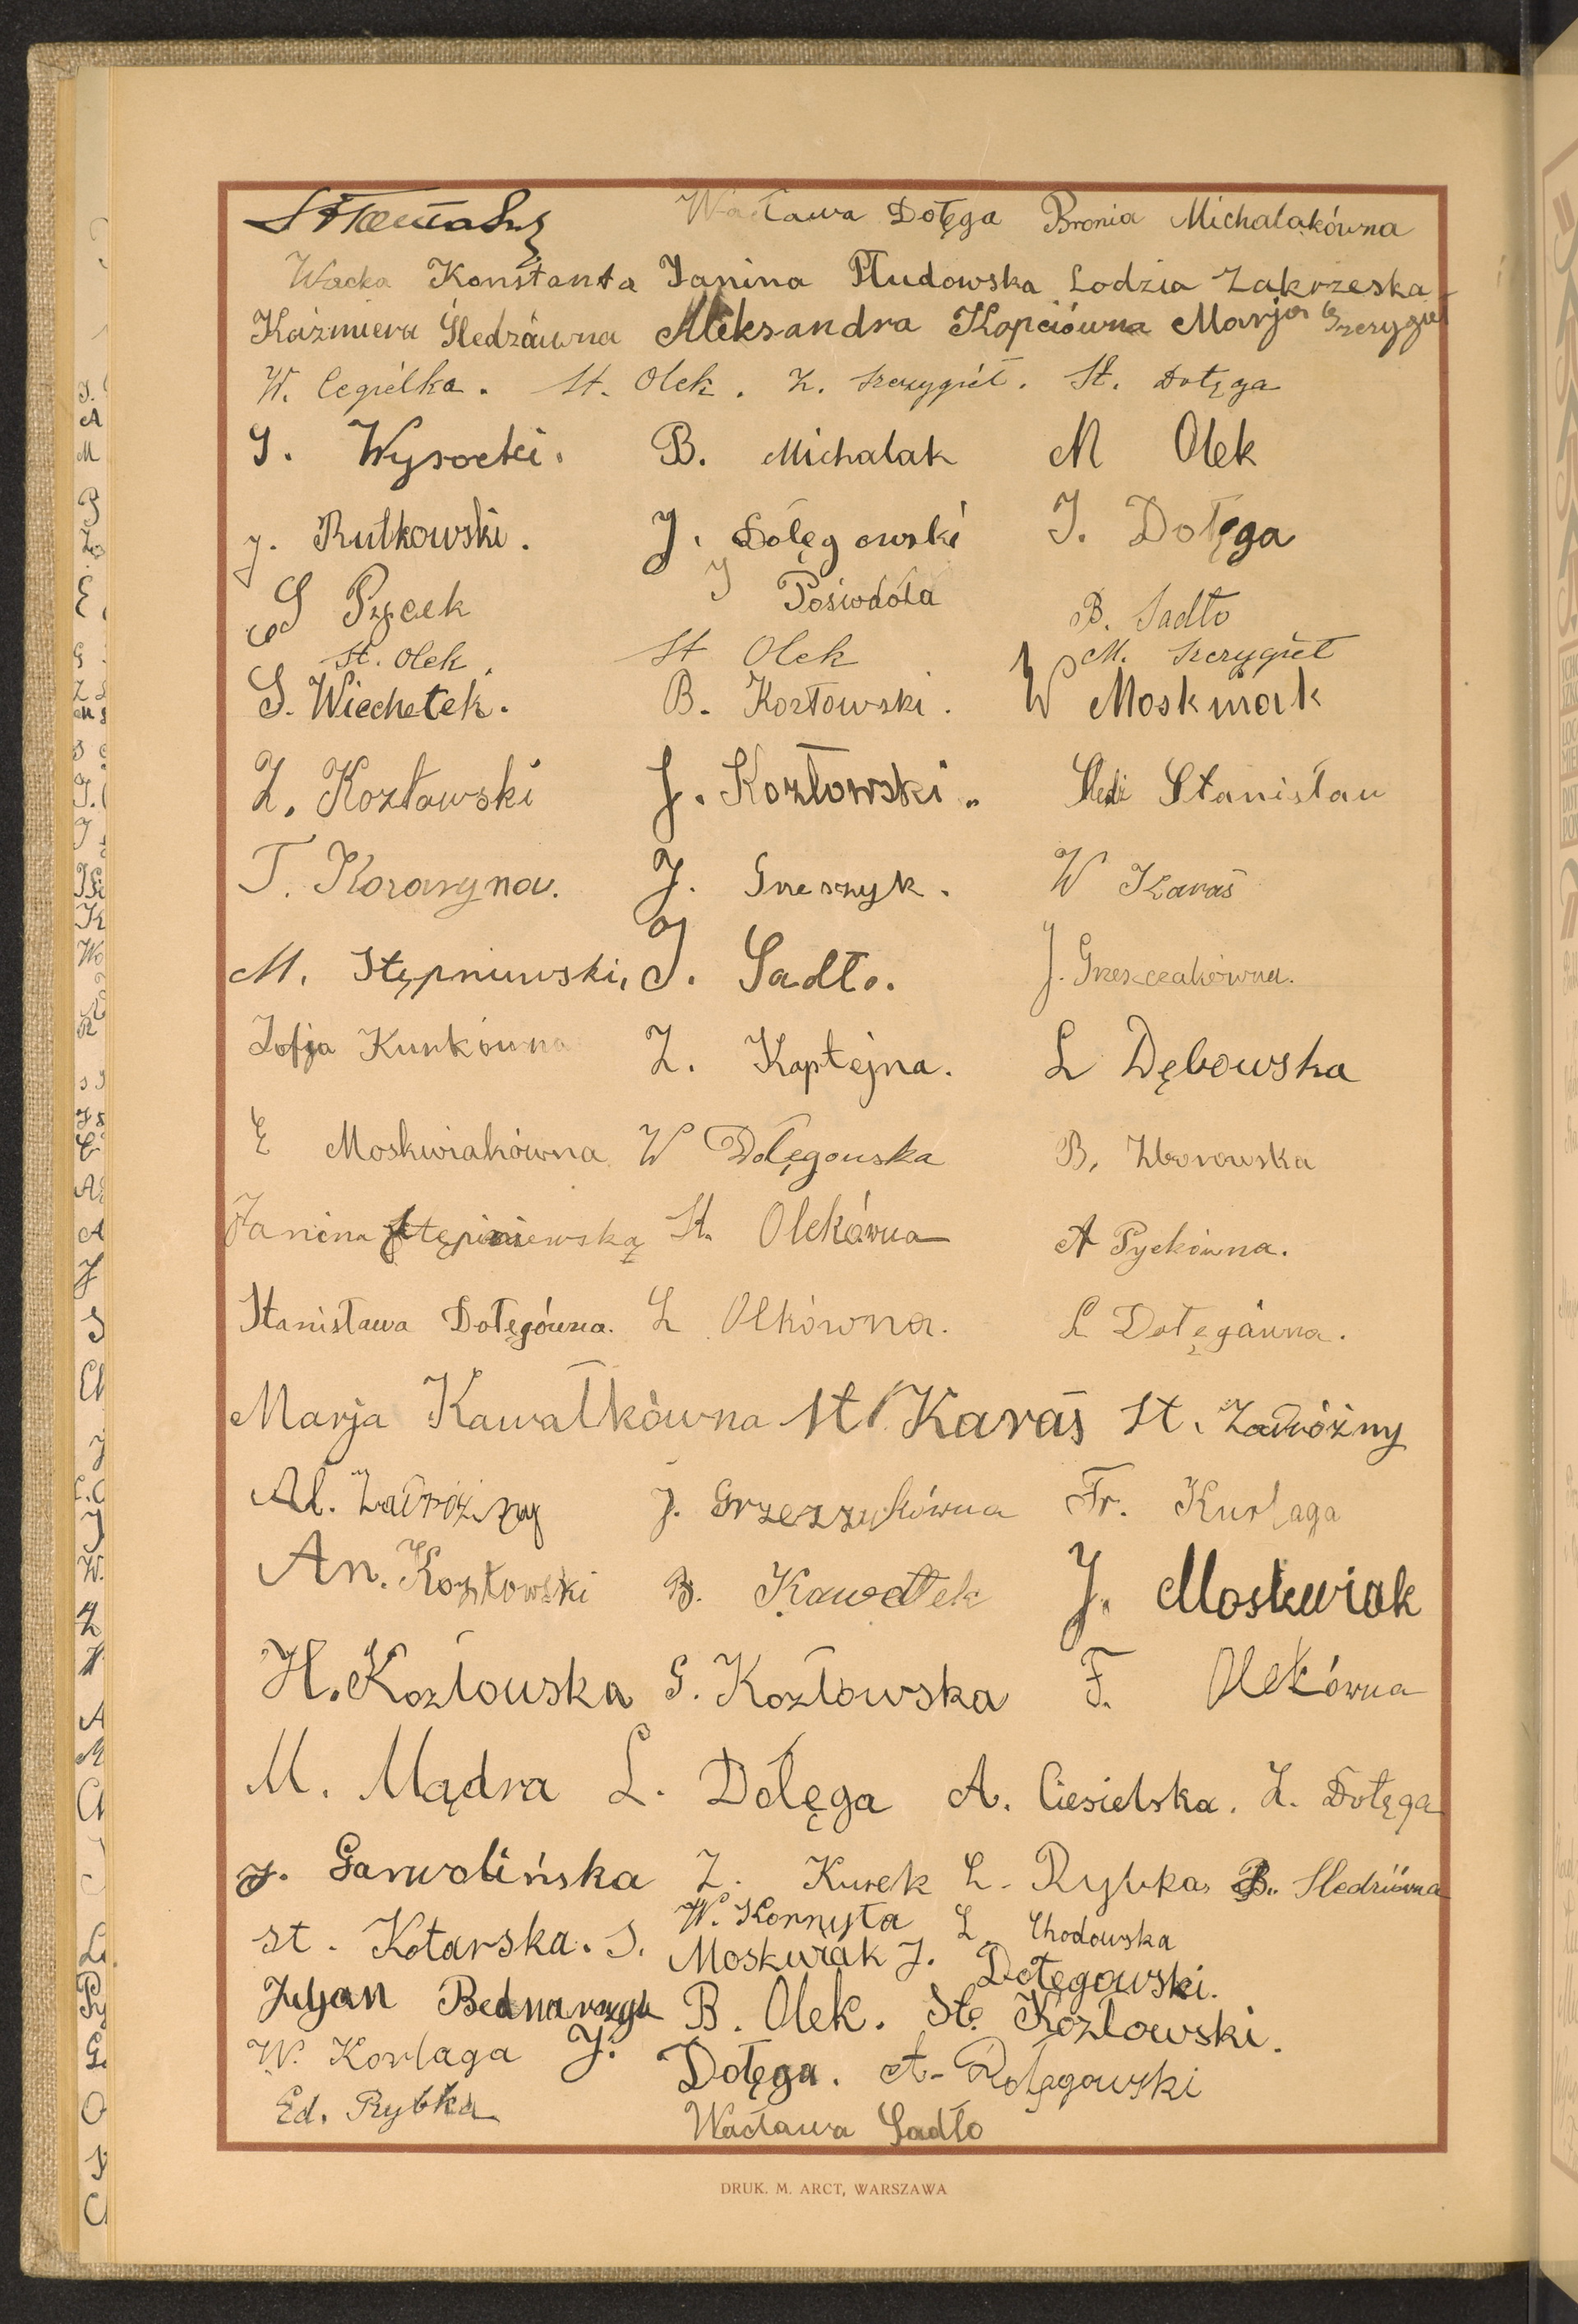 Wacława Dołęga Bronia Michalakówna
Wacka Konstanta Janina Płudowska Lodzia Zakrzeska
Kaźmiera Śledzówna Aleksandra Kopciówna Marja Szczygieł
W. Cegiełka. St. Olek. Z. Szczygieł. St. Dołęga
S. Wysocki. B. Michalak M Olek
J. Rutkowski. J. Dołęgowski J. Dołęga
S Pycek J Pośiwdoła B. Sadło
St. Olek. St Olek M. Szczygieł
S. Wiechetek. B. Kozłowski. W Moskwiak
Z. Kozłowski J. Kozłowski. Śledź Stanisław
T. J. Greszyk. W Karaś
M. Stępniewski, J. Sadło. J. Grzeszczakówna.
Zofja Kurkówna Z. Kapłejna. L Dębowska
E Moskwiakówna W Dołęgowska B. Zborowska
Janina Stępniewska St. Olekówna A Pyckówna.
Stanisława Dołęgówna. Z Olkówna. L Dołęgówna.
Marja Kawałkówna St. Karaś St. Zawróżny
Al. Zawróżny J. Grzeszykówna Fr. Kurłaga
An. Kozłowski B. Kawałek J. Moskwiak
H. Kozłowska G. Kozłowska F. Olekówna
M. Mądra L. Dołęga A. Ciesielska. Z. Dołęga
J. Garwolińska Z. Kurek L. Rybka B. Śledziówna
W. Kornyta L. Chodowska
St. Kotarska. S. Moskwiak J. Dołęgowski.
Juljan Bednarczyk B. Olek. St. Kozłowski.
W. Korlaga J. Dołęga. A. Dołęgowski
Ed. Rybka Wacława Sadło
DRUK. M. ARCT, WARSZAWA